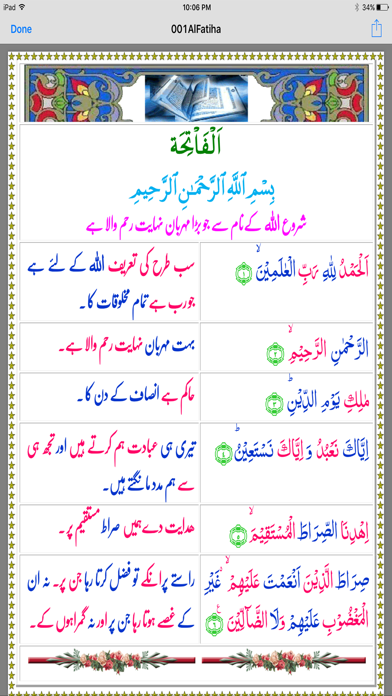 iPad 10:06 PM 34%
Done 001AlFatiha
اَلْفَاْتِحَة
بِسْمِ اللَّهِ الرَّحْمَٰنِ الرَّحِيمِ
شروع اللہ کےنام سے جو بڑا مہربان نہایت رحم والا ہے
اَلْحَمْدُ لِلّٰهِ رَبِّ الْعٰلَمِيْنَ ۙ ﴿۱﴾
سب طرح کی تعریف اللہ کے لئے ہے
جورب ہے تمام مخلوقات کا۔
الرَّحْمٰنِ الرَّحِيْمِ ۙ ﴿۲﴾
بہت مہربان نہایت رحم والا ہے۔
مٰلِكِ يَوْمِ الدِّيْنِ ؕ ﴿۳﴾
حاکم ہے انصاف کے دن کا۔
اِيَّاكَ نَعْبُدُ وَ اِيَّاكَ نَسْتَعِيْنُ ؕ ﴿۴﴾
تیری ہی عبادت ہم کرتے ہیں اور تجھ ہی
سے ہم مدد مانگتے ہیں۔
اِهْدِنَا الصِّرَاطَ الْمُسْتَقِيْمَ ۙ ﴿۵﴾
ھدایت دے ہمیں صراط مستقیم پر۔
صِرَاطَ الَّذِيْنَ اَنْعَمْتَ عَلَيْهِمْ ۙ غَيْرِ
الْمَغْضُوْبِ عَلَيْهِمْ وَلَا الضَّآلِّيْنَ ۠ ﴿۶﴾
راستے پر انکے تو فضل کرتا رہا جن پر۔ نہ ان
کے غصے ہوتا رہا جن پر اور نہ گمراہوں کے۔